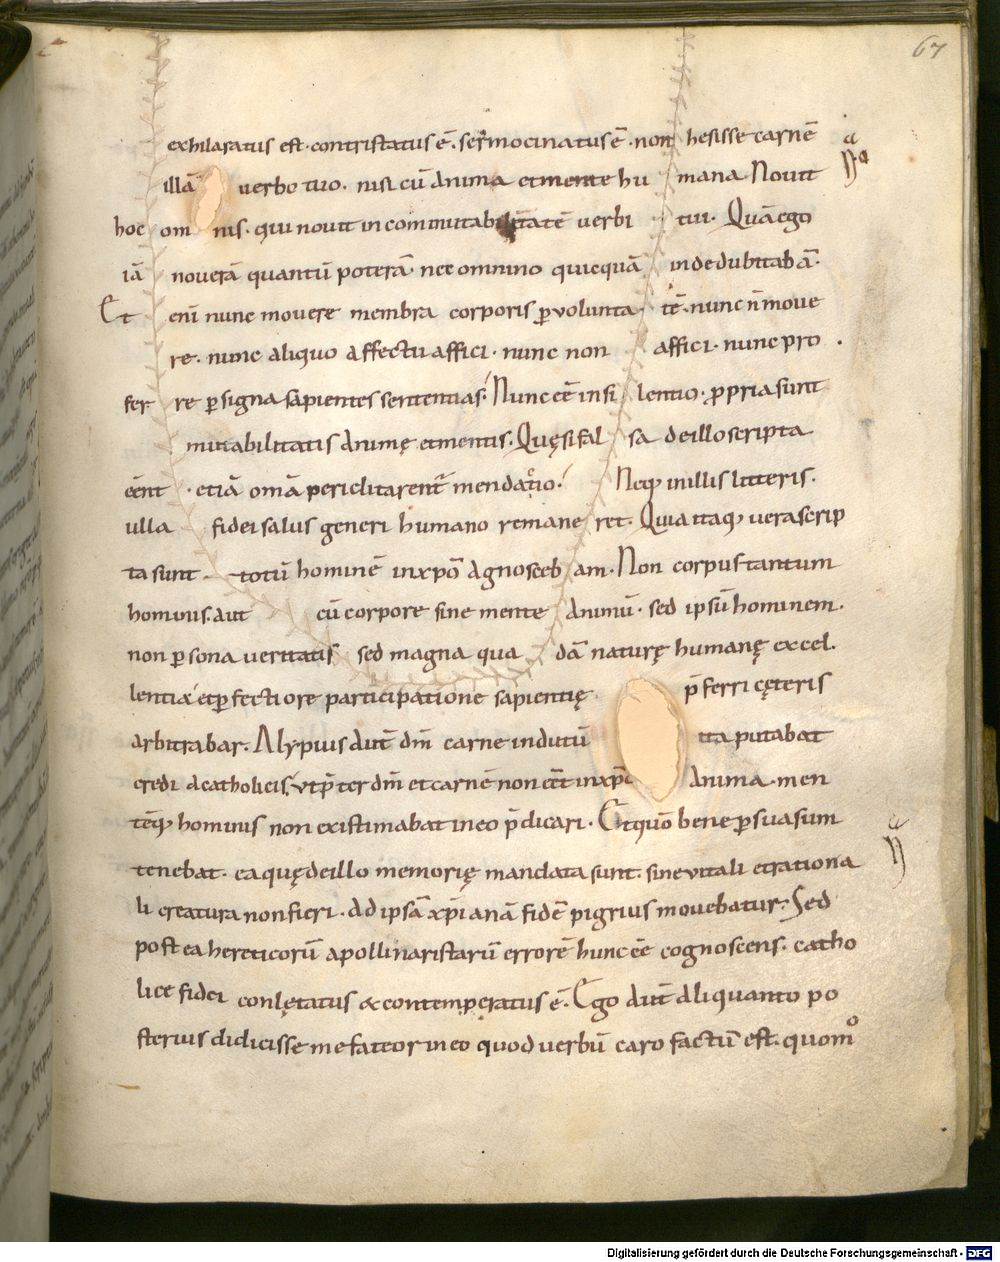 67
exhilaratus est · contristatus ē · sermocinatus ē · non hesisse carnē
illā verbo tuo · nisi cū anima et mente hu mana Novit
hoc om nis · qui novit incommutabilitatē verbi tui · Quā ego
iā noverā quantū poterā · nec omnino quicquā inde dubitabā ·
Et eni nunc movere membra corporis p̄ volunta tē · nunc n̄ move
re · nunc aliquo affectu affici · nunc non affici · nunc pro
fer re p̄ signa sapientes sententias · Nunc ēē in si lentio · propria sunt
mutabilitatis animę et mentis · Quę si fal sa de illo scripta
eēnt · etiā omā periclitarent mendatio · Neq; in illis litteris ·
ulla fidei salus generi humano remane ret · Quia itaq; vera scrip
ta sunt totū hominē in xp̄o agnosceb am · Non corpus tantum
hominis · aut cū corpore sine mente animū · sed ipsū hominem ·
non p̄sona veritatis sed magna qua dā naturę humanę excel
lentia et p̄fectiore participatione sapientię p̄ferri cęteris
arbitrabar · Alypius aut̄ dm̄ carne indutū ita putabat
credi a catholicis, ut p̄ter dm̄ et carnē non eēt in xp̄o anima · men
tēq; hominis non existimabat in eo p̄dicari · Et quō bene p̄suasum
tenebat · ea quę de illo memorię mandata sunt · sine vitali et rationa
li creatura non fieri · Ad ipsā xp̄ianā fidē pigrius movebatur · Sed
postea hereticorū apollinaristarū errorē hunc ēē cognoscens · catho
lice fidei conlętatus & contemperatus ē · Ego aut̄ aliquanto po
sterius didicisse me fateor in eo quod verbū caro factū est · quomo
Digitalisierung gefördert durch die Deutsche Forschungsgemeinschaft - DFG